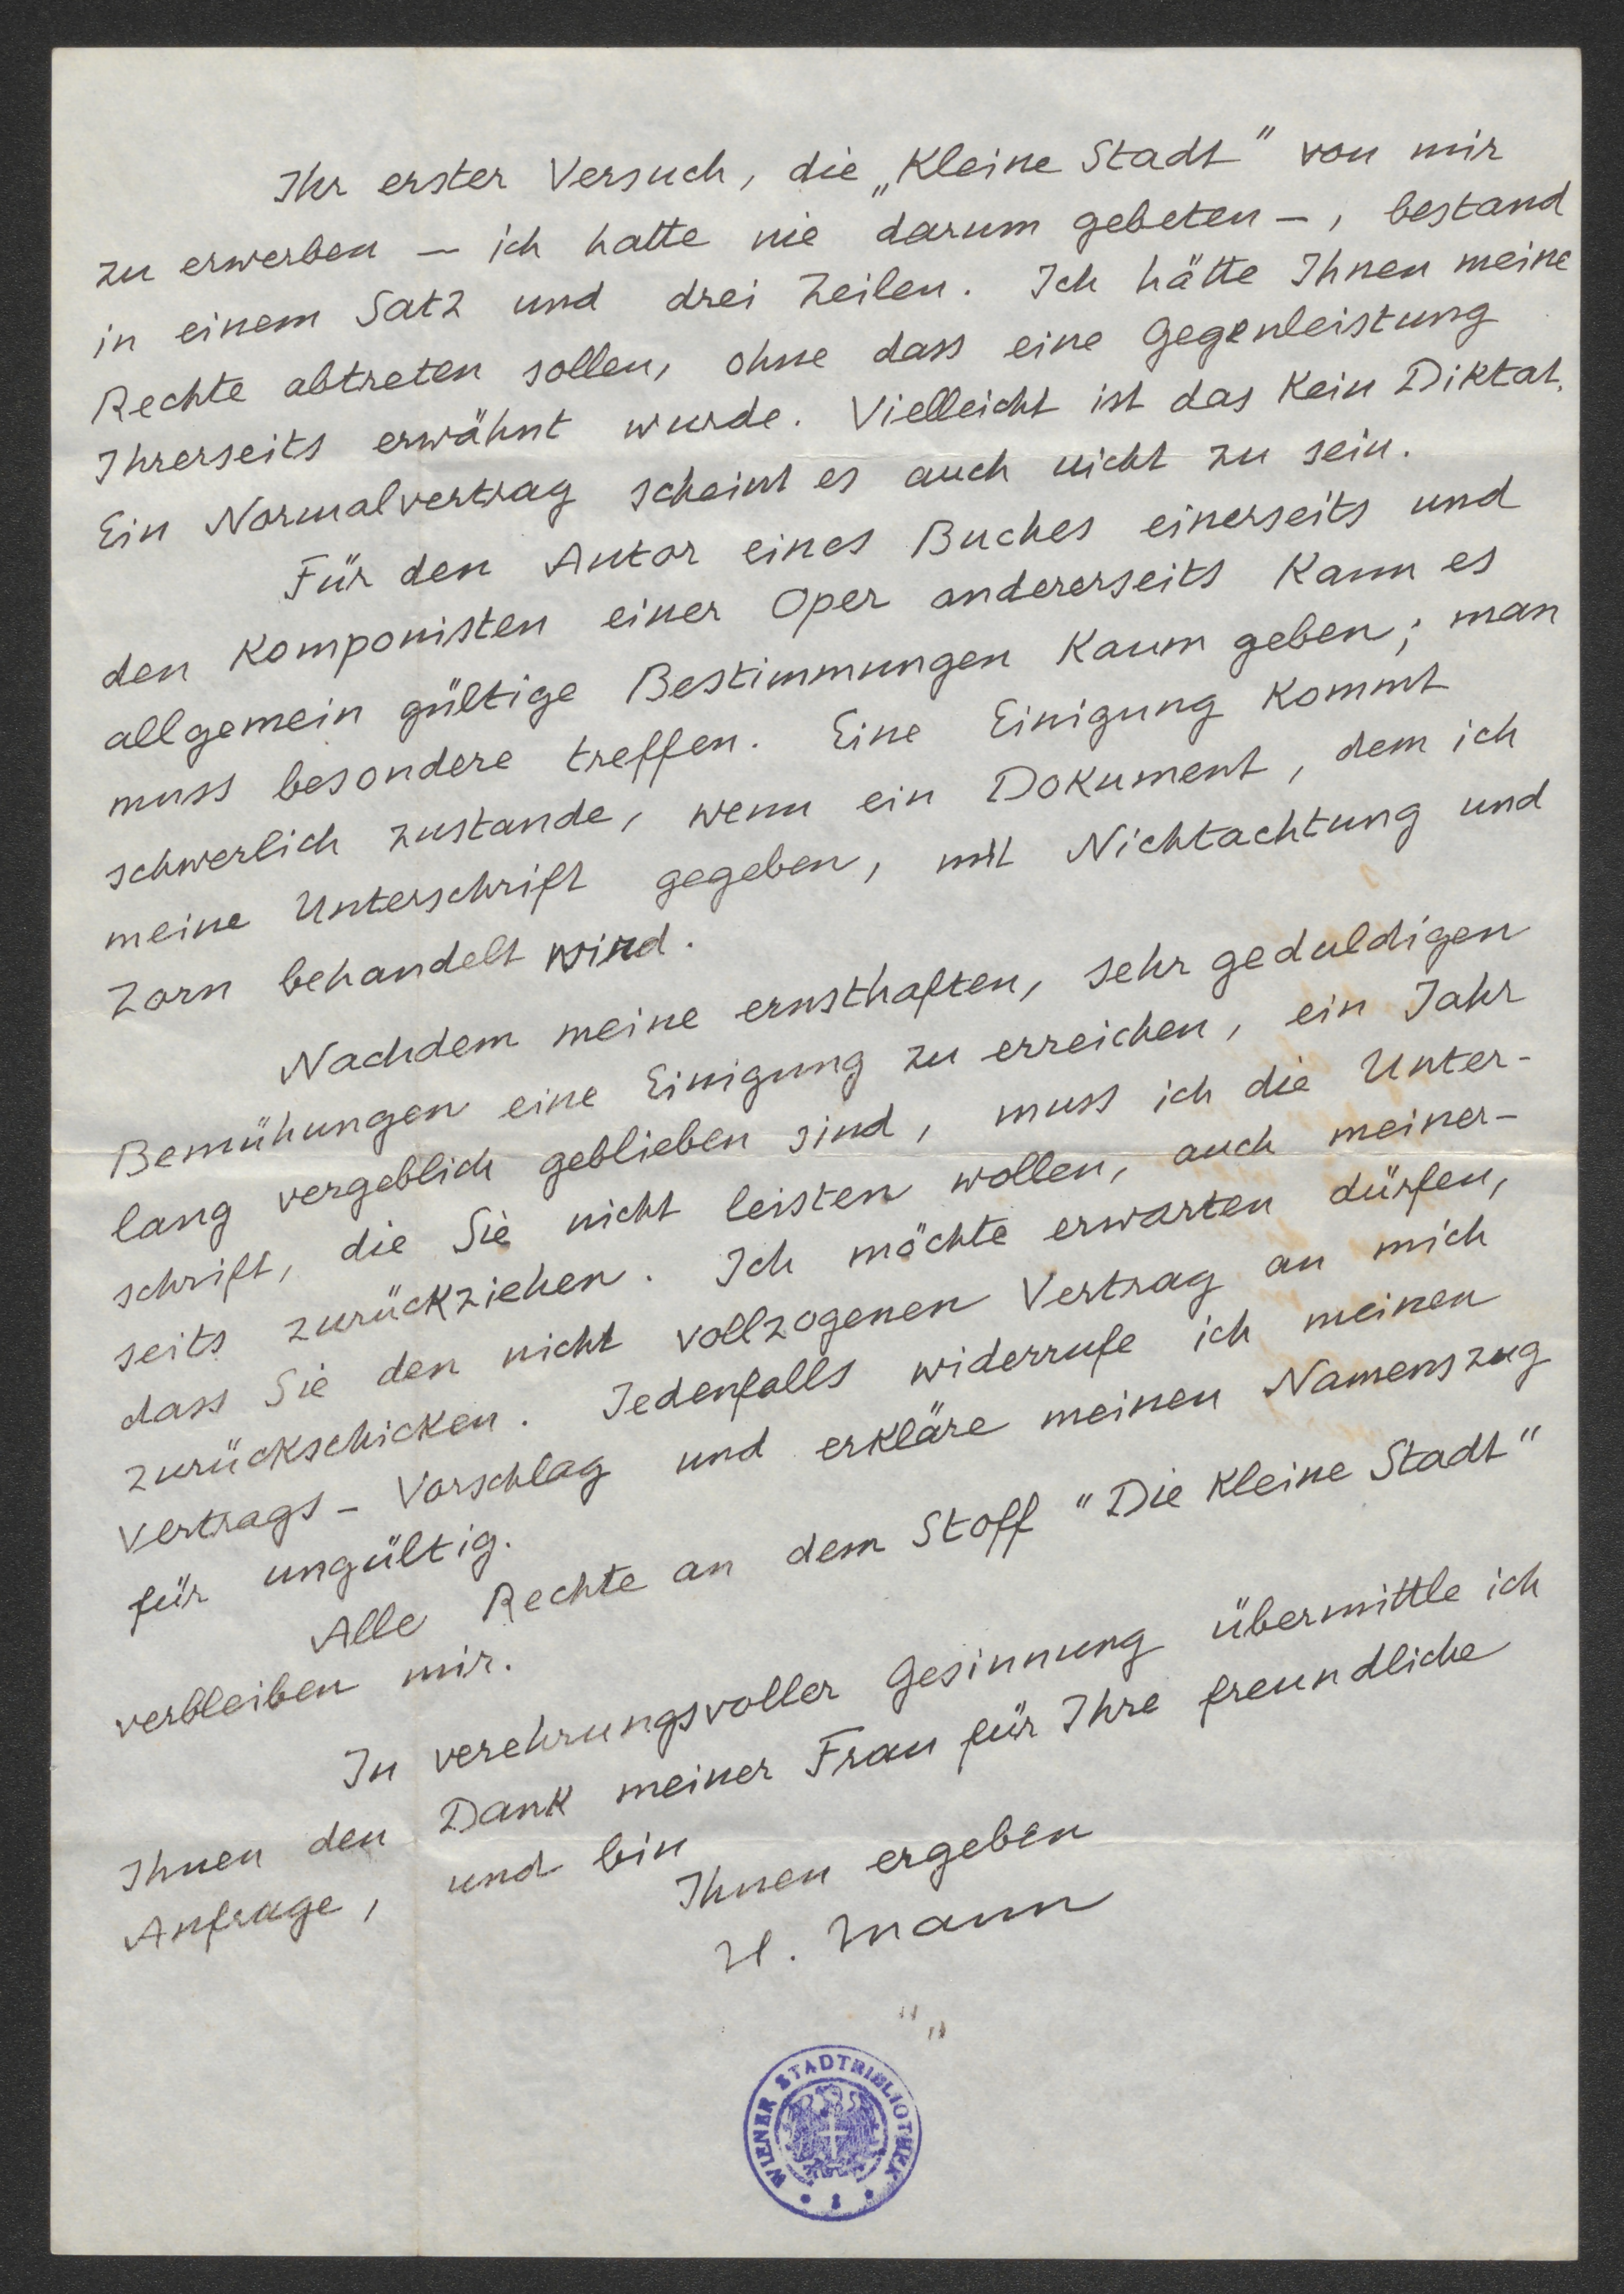 Ihr erster Versuch, die „Kleine Stadt" von mir
zu erwerben — ich hatte nie darum gebeten —, bestand
in einem Satz und drei Zeilen. Ich hätte Ihnen meine
Rechte abtreten sollen, ohne dass eine Gegenleistung
Ihrerseits erwähnt wurde. Vielleicht ist das kein Diktat.
Ein Normalvertrag scheint es auch nicht zu sein.
Für den Autor eines Buches einerseits und
den Komponisten einer Oper andererseits kann es
allgemein gültige Bestimmungen kaum geben; man
muss besondere treffen. Eine Einigung kommt
schwerlich zustande, wenn ein Dokument, dem ich
meine Unterschrift gegeben, mit Nichtachtung und
Zorn behandelt wird.
Nachdem meine ernsthaften, sehr geduldigen
Bemühungen eine Einigung zu erreichen, ein Jahr
lang vergeblich geblieben sind, muss ich die Unter-
schrift, die Sie nicht leisten wollen, auch meiner-
seits zurückziehen. Ich möchte erwarten dürfen,
dass Sie den nicht vollzogenen Vertrag an mich
zurückschicken. Jedenfalls widerrufe ich meinen
Vertrags-Vorschlag und erkläre meinen Namenszug
für ungültig.
Alle Rechte an dem Stoff "Die kleine Stadt"
verbleiben mir.
In verehrungsvoller Gesinnung übermittle ich
Ihnen den Dank meiner Frau für Ihre freundliche
Anfrage, und bin
Ihnen ergeben
H. Mann
WIENER STADTBIBLIOTHEK